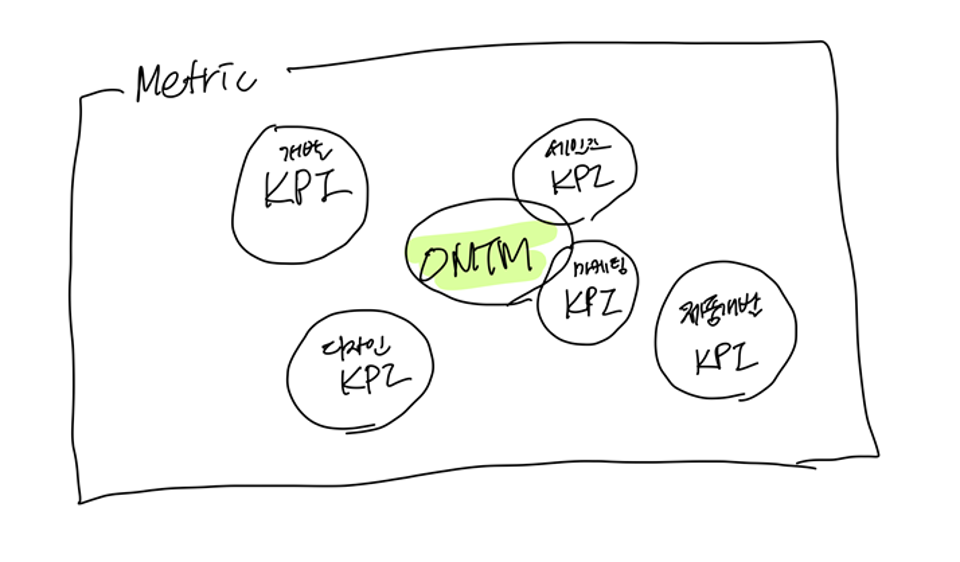 Metric
개발
KPI
세일즈
KPI
ONTM
마케팅
KPI
제품개발
KPI
디자인
KPI